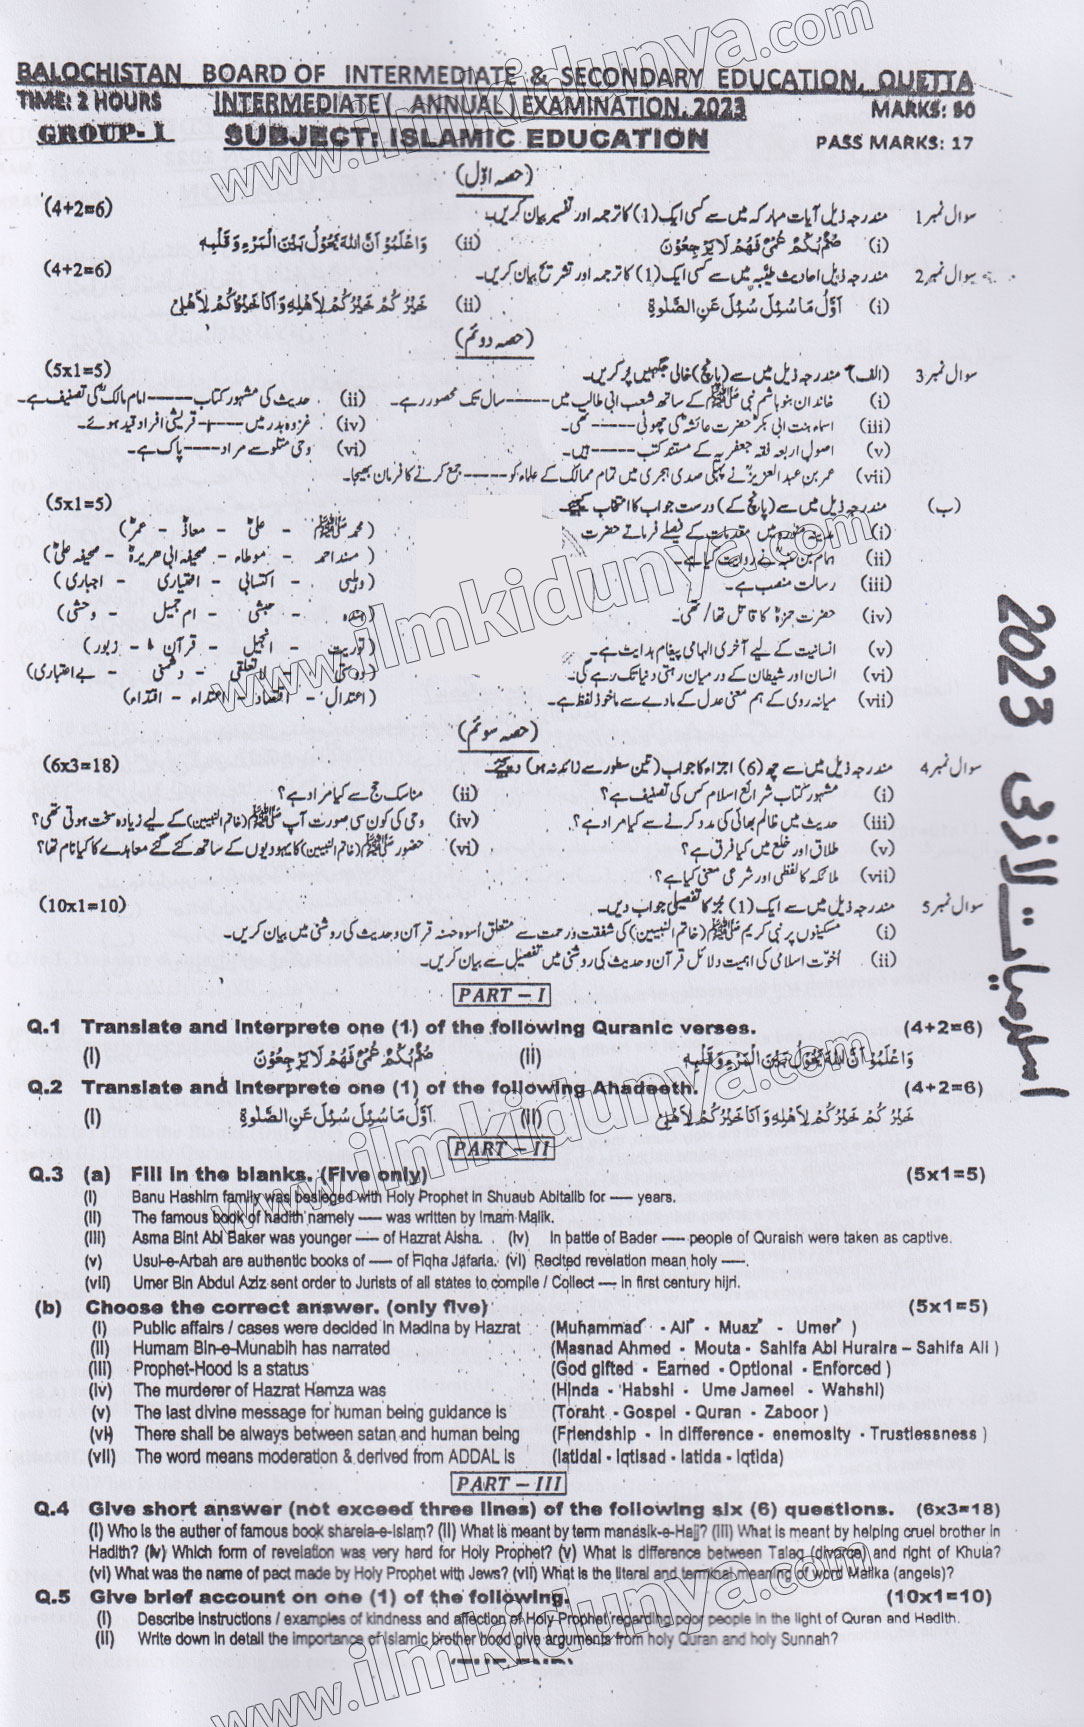 BALOCHISTAN BOARD OF INTERMEDIATE & SECONDARY EDUCATION, QUETTA
TIME: 2 HOURS INTERMEDIATE ( ANNUAL ) EXAMINATION, 2023 MARKS: 50
GROUP- I SUBJECT: ISLAMIC EDUCATION PASS MARKS: 17
(حصہ اوّل)
سوال نمبر 1 مندرجہ ذیل آیات مبارکہ میں سے کسی ایک (1) کا ترجمہ اور تفسیر بیان کریں۔ (4+2=6)
(i) صُمٌّۢ بُكْمٌ عُمْىٌ فَهُمْ لَا يَرْجِعُوْنَ (ii) وَاعْلَمُوْٓا اَنَّ اللّٰهَ يَحُوْلُ بَيْنَ الْمَرْءِ وَقَلْبِهٖ
سوال نمبر 2 مندرجہ ذیل احادیث طیّبہ میں سے کسی ایک (1) کا ترجمہ اور تشریح بیان کریں۔ (4+2=6)
(i) اَوَّلُ مَا سُئِلَ سُئِلَ عَنِ الصَّلٰوةِ (ii) خَيْرُكُمْ خَيْرُكُمْ لِاَهْلِهٖ وَاَنَا خَيْرُكُمْ لِاَهْلِىْ
(حصہ دوئم)
سوال نمبر 3 (الف) مندرجہ ذیل میں سے (پانچ) خالی جگہیں پُر کریں۔ (5x1=5)
(i) خاندان بنو ہاشم نبی ﷺ کے ساتھ شعب ابی طالب میں ----- سال تک محصور رہے۔ (ii) حدیث کی مشہور کتاب ----- امام مالکؒ کی تصنیف ہے۔
(iii) اسماء بنت ابی بکرؓ حضرت عائشہؓ کی چھوٹی ----- تھی۔ (iv) غزوہ بدر میں ----- قریشی افراد قید ہوئے۔
(v) اصول اربعہ فقہ جعفریہ کے مستند کتب ----- ہیں۔ (vi) وحی متلو سے مراد ---- پاک ہے۔
(vii) عمر بن عبدالعزیزؒ نے پہلی صدی ہجری میں تمام ممالک کے علماء کو ----- جمع کرنے کا فرمان بھیجا۔
(ب) مندرجہ ذیل میں سے (پانچ کے) درست جواب کا انتخاب کیجیے۔ (5x1=5)
(i) مدینہ منورہ میں مقدمات کے فیصلے فرماتے حضرت (محمد ﷺ - علیؓ - معاذؓ - عمرؓ)
(ii) ہمام بن منبہؒ نے روایت کیا ہے۔ (مسند احمد - موطاء - صحیفہ ابی ھریرہؓ - صحیفہ علیؓ)
(iii) رسالت منصب ہے۔ (وہبی - اکتسابی - اختیاری - اجباری)
(iv) حضرت حمزہؓ کا قاتل تھا / تھی۔ (ہندہ - حبشی - ام جمیل - وحشی)
(v) انسانیت کے لیے آخری الہامی پیغام ہدایت ہے۔ (توریت - انجیل - قرآن - زبور)
(vi) انسان اور شیطان کے درمیان رہتی دنیا تک رہے گی۔ (دوستی - لاتعلقی - دشمنی - بے اعتباری)
(vii) میانہ روی کے ہم معنی عدل کے مادے سے ماخوذ لفظ ہے۔ (اعتدال - اقتصاد - اعتداء - اقتداء)
(حصہ سوئم)
سوال نمبر 4 مندرجہ ذیل میں سے چھ (6) اجزاء کا جواب (تین سطور سے زائد نہ ہو) دیجئے۔ (6x3=18)
(i) مشہور کتاب شرائع اسلام کس کی تصنیف ہے؟ (ii) مناسک حج سے کیا مراد ہے؟
(iii) حدیث میں ظالم بھائی کی مدد کرنے سے کیا مراد ہے؟ (iv) وحی کی کون سی صورت آپ ﷺ (خاتم النبیین) کے لیے زیادہ سخت ہوتی تھی؟
(v) طلاق اور خلع میں کیا فرق ہے؟ (vi) حضور ﷺ (خاتم النبیین) کا یہودیوں کے ساتھ کئے گئے معاہدے کا کیا نام تھا؟
(vii) ملائکہ کا لفظی اور شرعی معنی کیا ہے؟
سوال نمبر 5 مندرجہ ذیل میں سے ایک (1) جُز کا تفصیلی جواب دیں۔ (10x1=10)
(i) مسکینوں پر نبی کریم ﷺ (خاتم النبیین) کی شفقت ورحمت سے متعلق اُسوہ حسنہ قرآن و حدیث کی روشنی میں بیان کریں۔
(ii) اُخوّت اسلامی کی اہمیت دلائل قرآن و حدیث کی روشنی میں تفصیل سے بیان کریں۔
PART – I
Q.1 Translate and Interprete one (1) of the following Quranic verses. (4+2=6)
(i) صُمٌّۢ بُكْمٌ عُمْىٌ فَهُمْ لَا يَرْجِعُوْنَ (ii) وَاعْلَمُوْٓا اَنَّ اللّٰهَ يَحُوْلُ بَيْنَ الْمَرْءِ وَقَلْبِهٖ
Q.2 Translate and Interprete one (1) of the following Ahadeeth. (4+2=6)
(i) اَوَّلُ مَا سُئِلَ سُئِلَ عَنِ الصَّلٰوةِ (ii) خَيْرُكُمْ خَيْرُكُمْ لِاَهْلِهٖ وَاَنَا خَيْرُكُمْ لِاَهْلِىْ
PART – II
Q.3 (a) Fill in the blanks. (Five only) (5x1=5)
(i) Banu Hashim family was besieged with Holy Prophet in Shuaub Abitalib for ---- years.
(ii) The famous book of hadith namely ---- was written by Imam Malik.
(iii) Asma Bint Abi Baker was younger ---- of Hazrat Aisha. (iv) In battle of Bader ---- people of Quraish were taken as captive.
(v) Usul-e-Arbah are authentic books of ---- of Fiqha Jafaria. (vi) Recited revelation mean holy ----.
(vii) Umer Bin Abdul Aziz sent order to Jurists of all states to compile / Collect ---- in first century hijri.
(b) Choose the correct answer. (only five) (5x1=5)
(i) Public affairs / cases were decided in Madina by Hazrat (Muhammad - Ali - Muaz - Umer )
(ii) Humam Bin-e-Munabih has narrated (Masnad Ahmed - Mouta - Sahifa Abi Huraira – Sahifa Ali )
(iii) Prophet-Hood is a status (God gifted - Earned - Optional - Enforced )
(iv) The murderer of Hazrat Hamza was (Hinda - Habshi - Ume Jameel - Wahshi)
(v) The last divine message for human being guidance is (Toraht - Gospel - Quran - Zaboor )
(vi) There shall be always between satan and human being (Friendship - In difference - enemosity - Trustlessness )
(vii) The word means moderation & derived from ADDAL is (Iatidal - Iqtisad - Iatida - Iqtida)
PART – III
Q.4 Give short answer (not exceed three lines) of the following six (6) questions. (6x3=18)
(i) Who is the auther of famous book shareia-e-islam? (ii) What is meant by term manasik-e-Hajj? (iii) What is meant by helping cruel brother in
Hadith? (iv) Which form of revelation was very hard for Holy Prophet? (v) What is difference between Talaq (divorce) and right of Khula?
(vi) What was the name of pact made by Holy Prophet with Jews? (vii) What is the literal and terminal meaning of word Malika (angels)?
Q.5 Give brief account on one (1) of the following. (10x1=10)
(i) Describe instructions / examples of kindness and affection of Holy Prophet regarding poor people in the light of Quran and Hadith.
(ii) Write down in detail the importance of islamic brother hood give arguments from holy Quran and holy Sunnah?
(THE END)
اسلامیات لازمی 2023
www.ilmkidunya.com
www.ilmkidunya.com
www.ilmkidunya.com
www.ilmkidunya.com